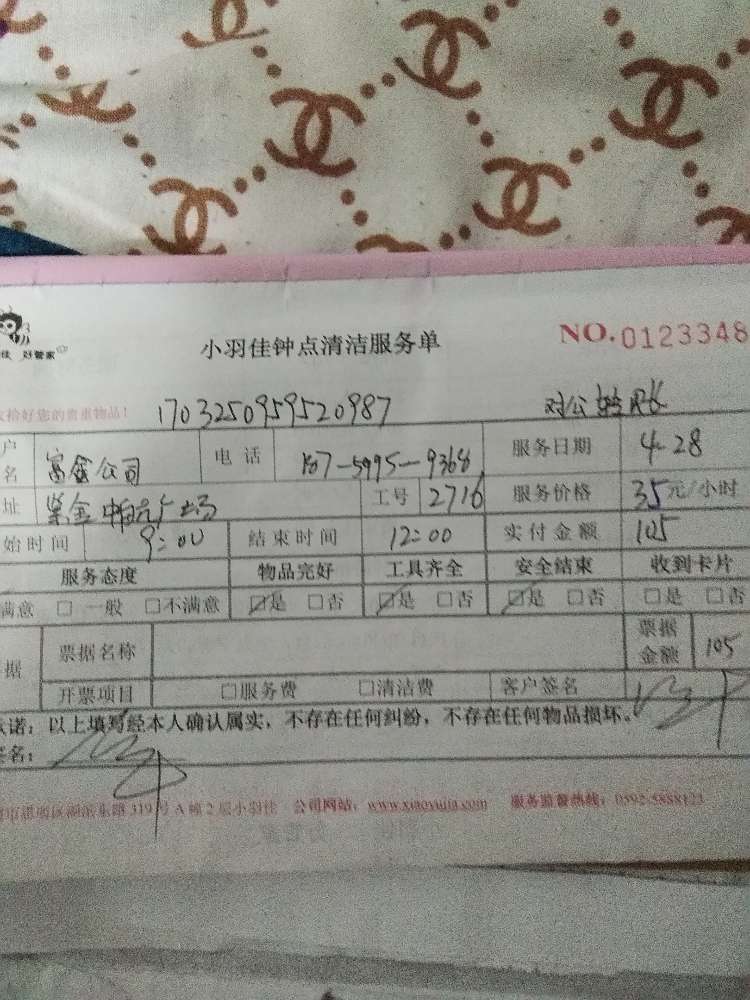 小羽佳钟点清洁服务单 NO.0123348
佳 好管家
收拾好您的贵重物品! 1703250959520987 对公转账
户名 富金公司 电话 187-5995-9368 服务日期 4-28
址 紫金 广场 工号 2716 服务价格 35元/小时
始时间 9:00 结束时间 12:00 实付金额 105
服务态度 物品完好 工具齐全 安全结束 收到卡片
满意 □一般 □不满意 ☑是 □否 ☑是 □否 ☑是 □否 □是 □否
据 票据名称 票据金额 105
开票项目 □服务费 □清洁费 客户签名
承诺:以上填写经本人确认属实,不存在任何纠纷,不存在任何物品损坏。
签名:
湖滨东路319号A幢2层小羽佳 公司网站:www.xiaoyujia.com 服务监督热线:0592-5888123